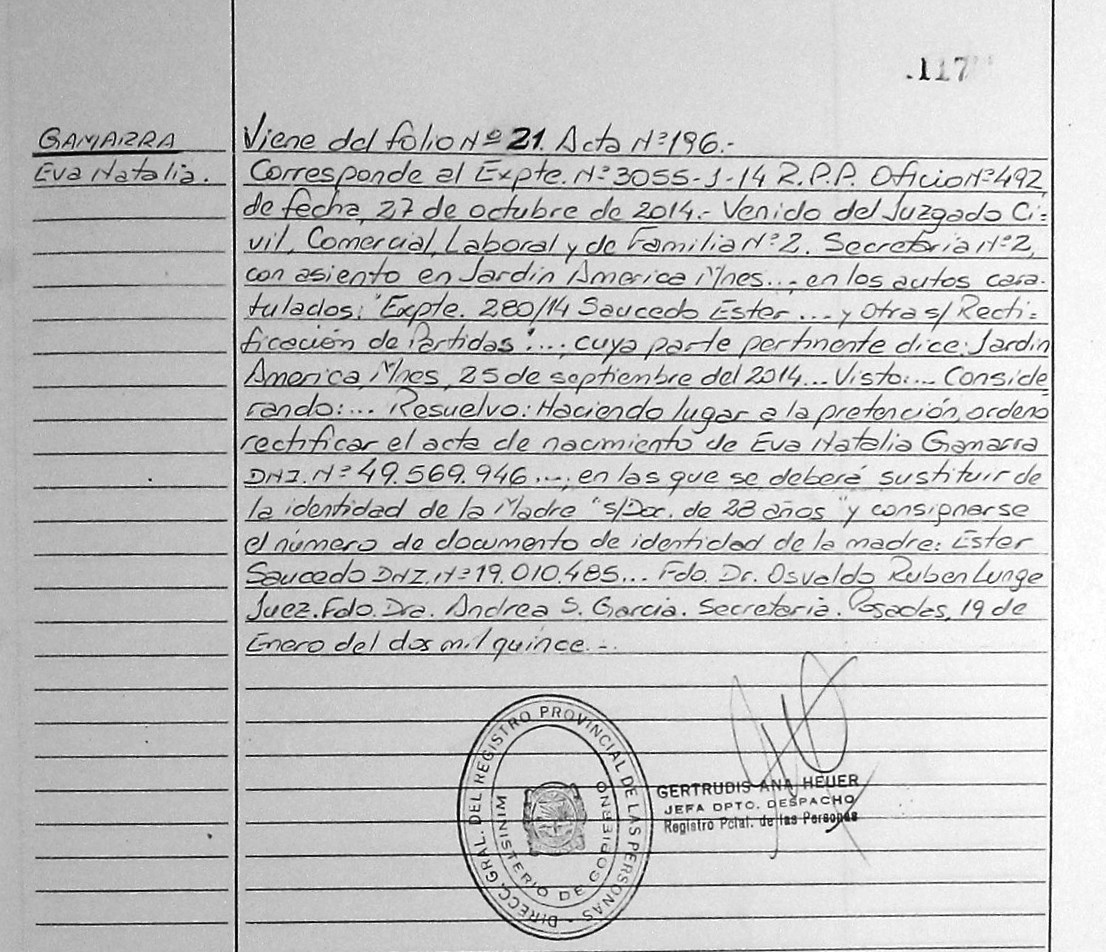 .117
GAMARRA
Eva Natalia.
Viene del folio Nº 21. Acta Nº 196.-
Corresponde al Expte. Nº 3055-J-14 R.P.P. Oficio Nº 492,
de fecha, 27 de octubre de 2014.- Venido del Juzgado Ci-
vil, Comercial, Laboral y de Familia Nº 2. Secretaria Nº 2,
con asiento en Jardin America Mnes...; en los autos cara-
tulados: "Expte. 280/14 Saucedo Ester ... y Otra s/ Recti-
ficación de Partidas"...; cuya parte pertinente dice: Jardin
America, Mnes, 25 de septiembre del 2014... Visto:... Conside
rando:... Resuelvo: Haciendo lugar a la pretención, ordeno
rectificar el acta de nacimiento de Eva Natalia Gamarra
DNI. Nº 49.569.946...; en las que se deberá sustituir de
la identidad de la Madre "s/Doc. de 28 años" y consignarse
el número de documento de identidad de la madre: Ester
Saucedo DNI. Nº 19.010.485... Fdo. Dr. Osvaldo Ruben Lunge
Juez. Fdo. Dra. Andrea S. Garcia. Secretaria. Posadas, 19 de
Enero del dos mil quince.-.
DIRECC. GRAL. DEL REGISTRO PROVINCIAL DE LAS PERSONAS -
MINISTERIO DE GOBIERNO
GERTRUDIS ANA HEUER
JEFA DPTO. DESPACHO
Registro Pcial. de las Personas